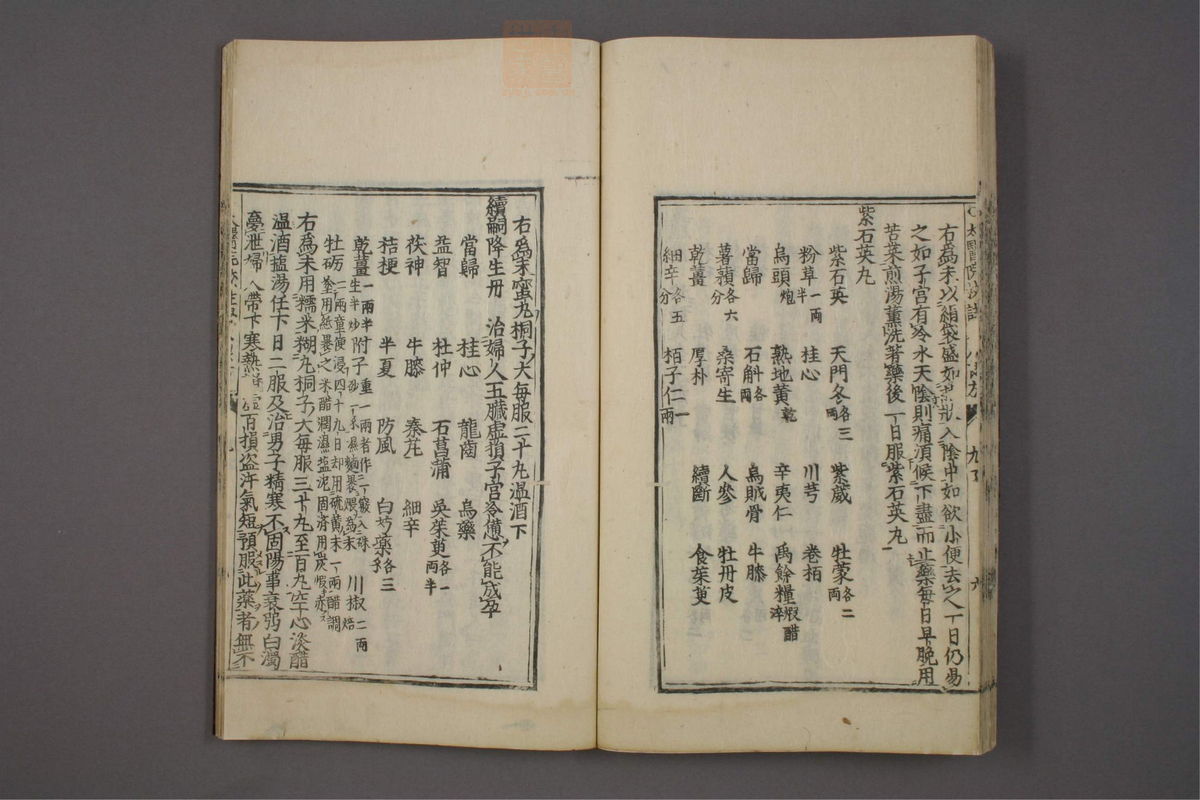 右為末以絹袋盛如指狀入陰中如欲小便去之一日仍易
之如子宮有冷水天陰則痛湏候下盡而止藥每日早晚用
苦菜煎湯薰洗著藥後一日服紫石英丸
紫石英丸
紫石英 天門冬各三兩 紫葳 牡蒙各二兩
粉草一兩半 桂心 川芎 卷栢
烏頭炮 熟地黃乾 辛夷仁 禹餘糧煆醋淬
當歸 石斛各兩 烏賊骨 牛膝
薯蕷各六分 桑寄生 人參 牡丹皮
乾薑 厚朴 續斷 食茱萸
細辛各五分 栢子仁一兩
右為末蜜丸桐子大每服二十九温酒下
續嗣降生丹 治婦人五臟虛損子宮冷憊不能成孕
當歸 桂心 龍齒 烏藥
益智 杜仲 石菖蒲 吳茱萸各一兩半
茯神 牛膝 秦艽 細辛
桔梗 半夏 防風 白芍藥各三
乾薑一兩半生半炒 附子重一兩者作一 川椒二兩焙
牡砺二兩童便浸四十九日却用硫黃末一兩醋調塗用紙裹之米醋潤濕盐泥固濟用炭煆
右為末用糯米糊丸桐子大每服三十丸至百丸空心淡醋
温酒盐湯任下日二服及治男子精寒不固陽事衰弱白濁
憂泄婦人帶下寒熱 虛百損盗汗氣短預服此藥者無不